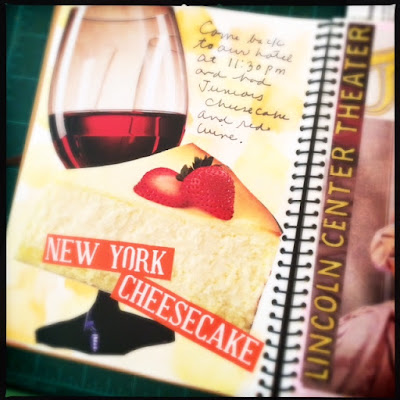 Come back
to our hotel
at 11:30pm
and had
Juniors
cheesecake
and red
wine.
NEW YORK
CHEESECAKE
LINCOLN CENTER THEATER